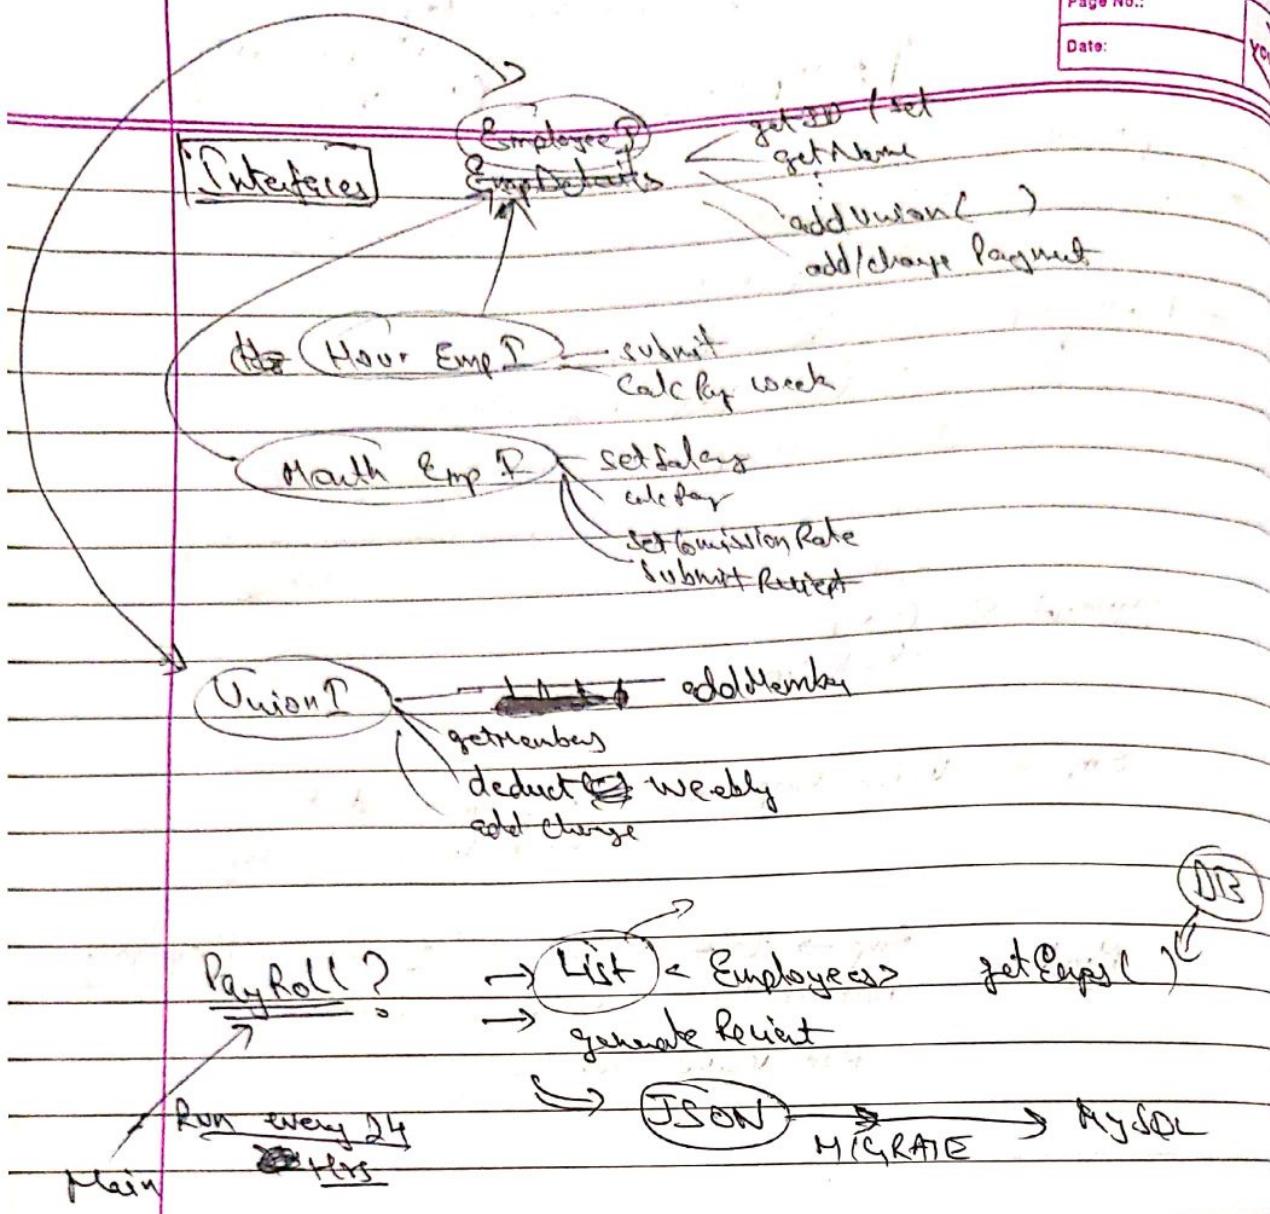 Page No.:
Date:
EmployeeI
Interfaces
EmpDetails
getID / set
getName
addUnion( )
add/change Payment
Hour Emp I
submit
Calc Pay week
Month Emp I
setSalary
calc Pay
setComissionRate
Submit Reciept
UnionI
addMember
getMembers
deduct weebly
add charge
DB
PayRoll ?
→ List < Employees> getEmps( )
→ generate Reciept
JSON → MySQL
MIGRATE
Run every 24
Hrs
Main